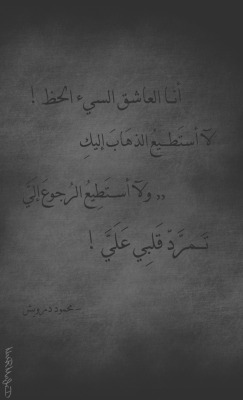 أنا العاشق السيء الحظ !
لآ أستطيعُ الذهَابَ إليكِ
,, ولآ أستَطِيعُ الرُجوعَ إلَيّ
تَمَرَّدّ قَلبِي عَلَيَّ !
- محمود درويش